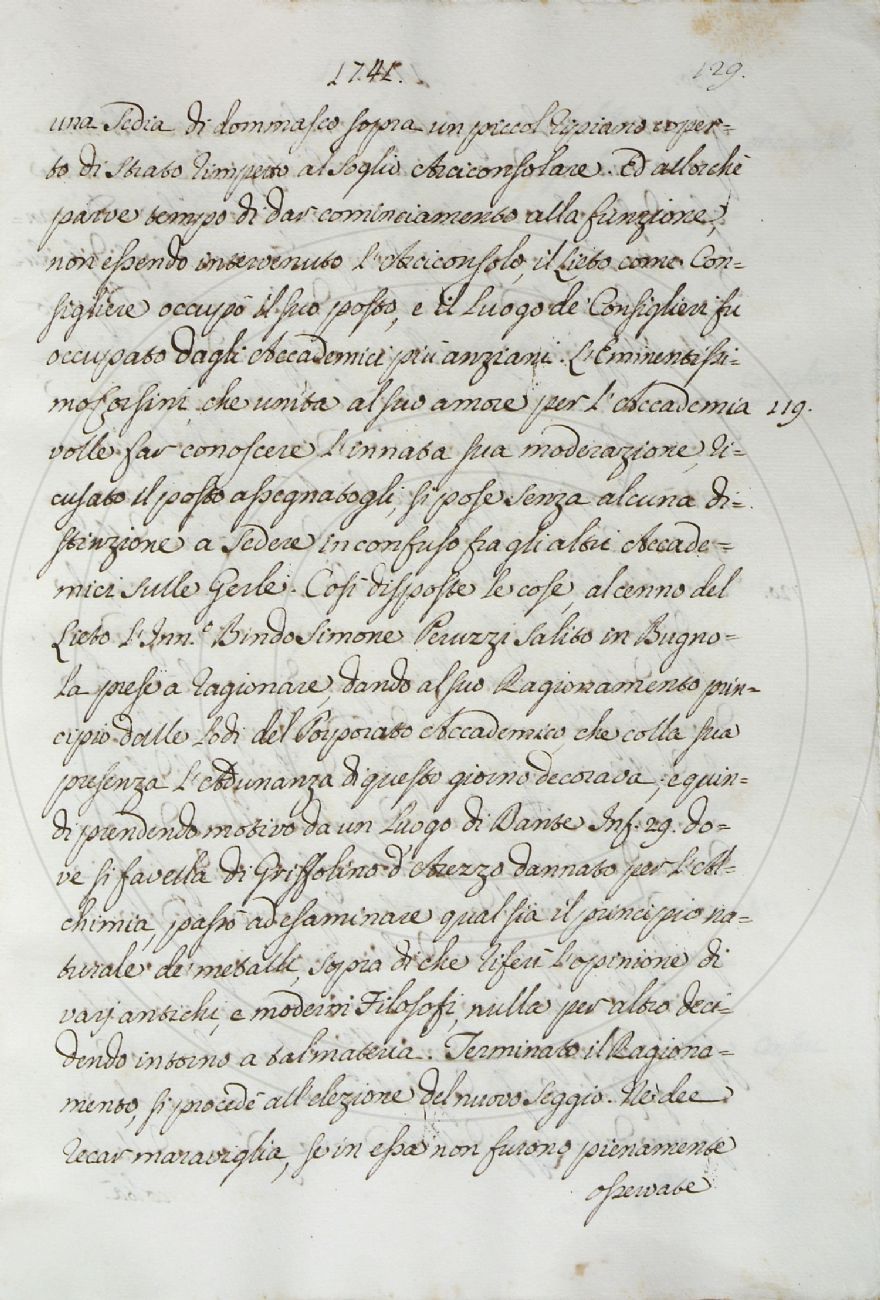 1741. 129.
una Sedia di dommasco sopra un piccol ripiano coper=
to di strato rimpetto al Soglio Arciconsolare. Ed allorchè
parve tempo di dar cominciamento alla funzione,
non essendo intervenuto l'Arciconsolo, il Lieto come Con=
sigliere occupò il suo posto, e il Luogo de' Consiglieri fu
occupato dagli Accademici più anziani. L'Eminentissi=
mo Corsini, che unita al suo amore per l'Accademia 119.
volle far conoscere l'innata sua moderazione, ri=
cusato il posto assegnatogli, si pose senza alcuna di=
stinzione a Sedere in confuso fra gli altri Accade=
mici sulle Gerle. Così disposte le cose, al cenno del
Lieto l'Inn.º Bindo Simone Peruzzi salito in Bugno=
la prese a ragionare, dando al suo Ragionamento prin=
cipio dalle Lodi del Porporato Accademico, che colla sua
presenza l'Adunanza di questo giorno decorava; e quin=
di prendendo motivo da un Luogo di Dante Inf. 29. do=
ve si favella di Griffolino d'Arezzo dannato per l'Al=
chimia, passò ad esaminare qual sia il principio na=
turale de' metalli, sopra di che riferì l'opinione di
varj antichi, e moderni Filosofi, nulla per altro deci=
dendo intorno a tal materia. Terminato il Ragiona=
mento, si procedè all'elezione del nuovo Seggio. Nè dee
recar maraviglia, se in essa non furono pienamente
osservate